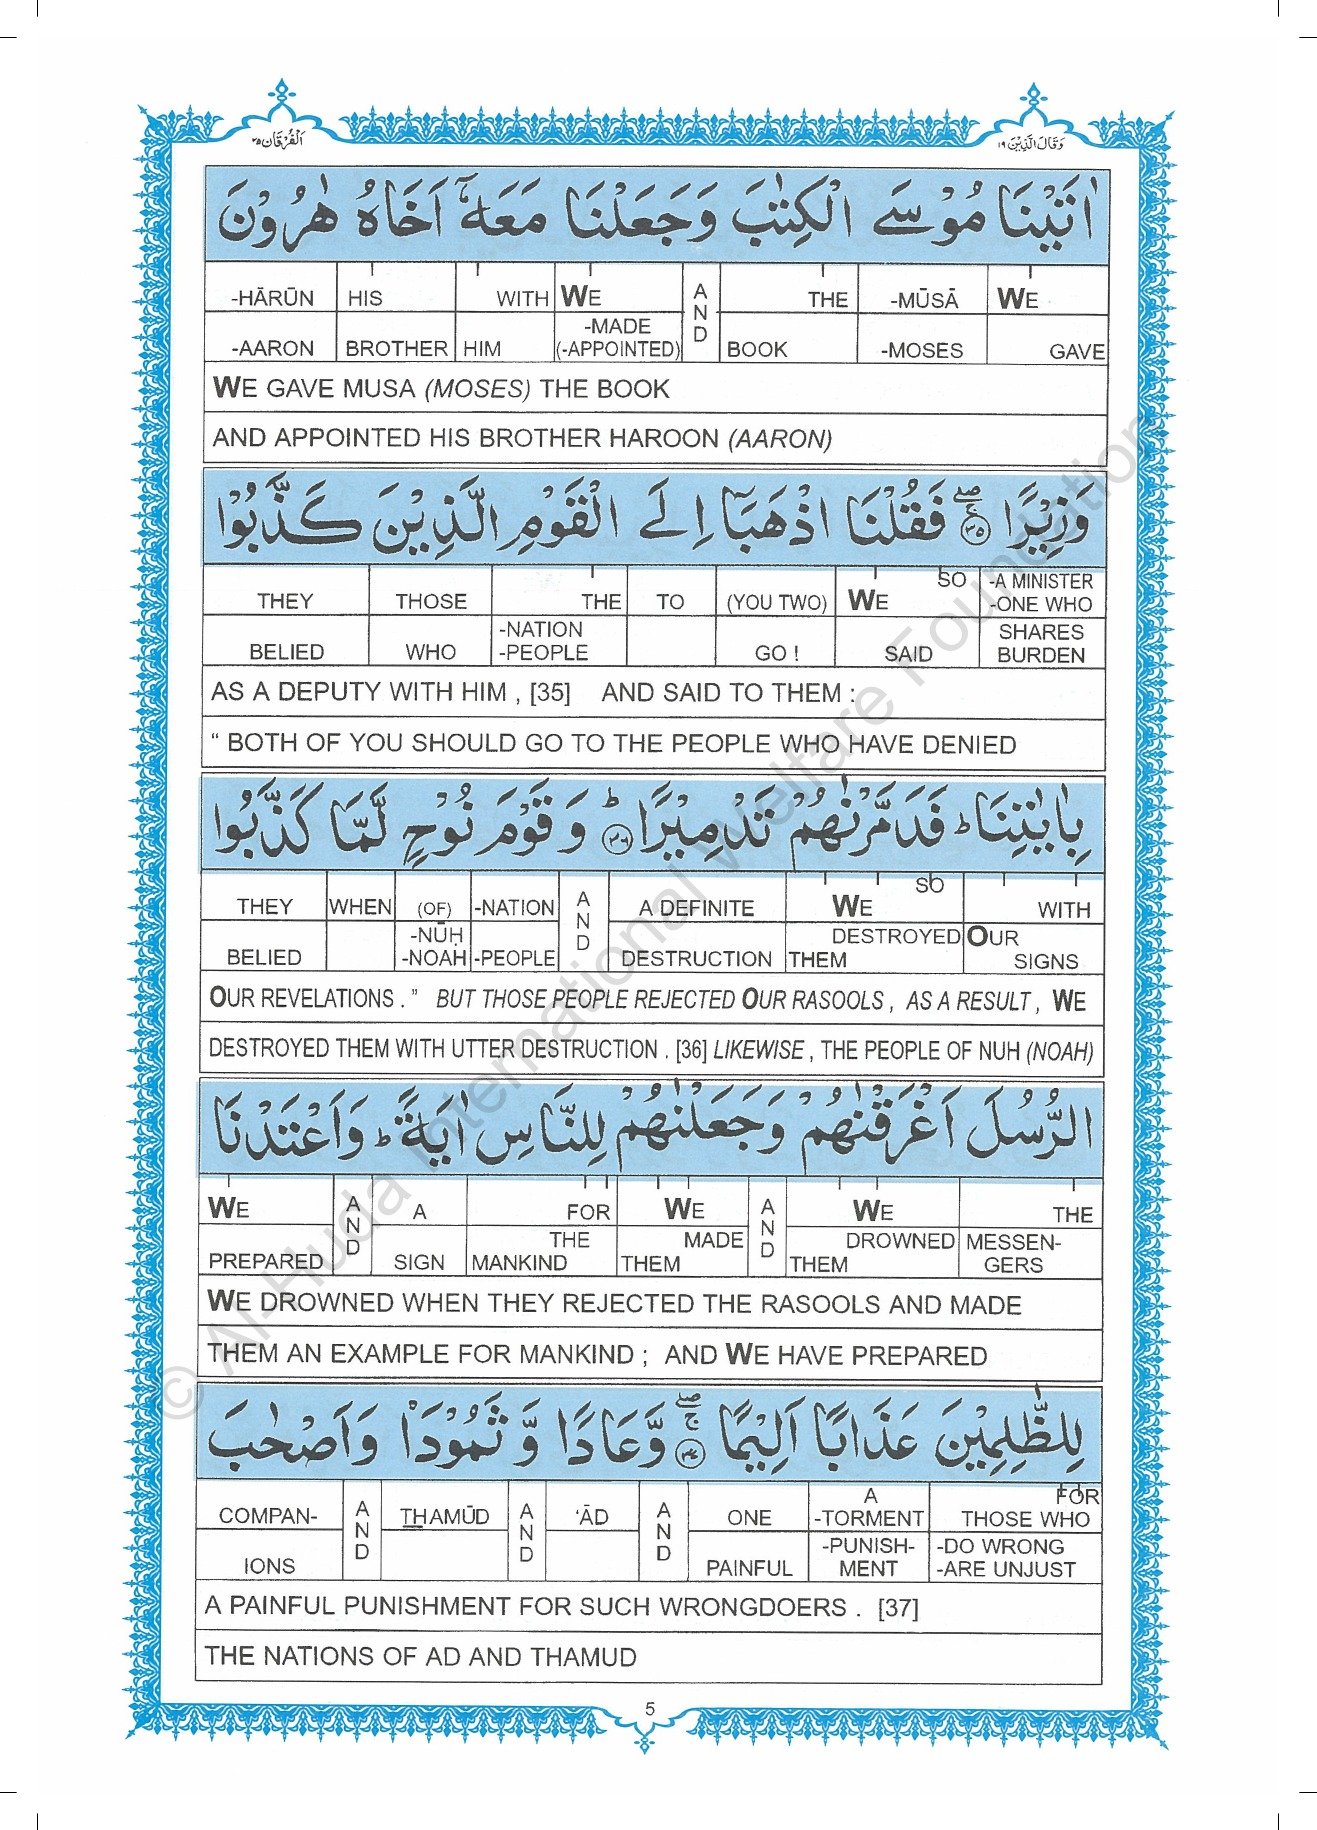 اَلْفُرْقَان ٢٥
وَقَالَ الَّذِيْنَ ١٩
اٰتَيْنَا مُوْسَى الْكِتٰبَ وَجَعَلْنَا مَعَهٗٓ اَخَاهُ هٰرُوْنَ
-HĀRŪN HIS WITH WE AND THE -MŪSĀ WE
-AARON BROTHER HIM -MADE (-APPOINTED) BOOK -MOSES GAVE
WE GAVE MUSA (MOSES) THE BOOK
AND APPOINTED HIS BROTHER HAROON (AARON)
وَزِيْرًا ۚ ۖ ٣٥ فَقُلْنَا اذْهَبَآ اِلَى الْقَوْمِ الَّذِيْنَ كَذَّبُوْا
THEY THOSE THE TO (YOU TWO) WE SO -A MINISTER -ONE WHO
BELIED WHO -NATION -PEOPLE GO ! SAID SHARES BURDEN
AS A DEPUTY WITH HIM , [35] AND SAID TO THEM :
“ BOTH OF YOU SHOULD GO TO THE PEOPLE WHO HAVE DENIED
بِاٰيٰتِنَا ؕ فَدَمَّرْنٰهُمْ تَدْمِيْرًا ؕ ٣٦ وَقَوْمَ نُوْحٍ لَّمَّا كَذَّبُوا
THEY WHEN (OF) -NATION AND A DEFINITE WE SO WITH
BELIED -NŪḤ -NOAH -PEOPLE DESTRUCTION DESTROYED THEM OUR SIGNS
OUR REVELATIONS . ” BUT THOSE PEOPLE REJECTED OUR RASOOLS , AS A RESULT , WE
DESTROYED THEM WITH UTTER DESTRUCTION . [36] LIKEWISE , THE PEOPLE OF NUH (NOAH)
الرُّسُلَ اَغْرَقْنٰهُمْ وَجَعَلْنٰهُمْ لِلنَّاسِ اٰيَةً ؕ وَاَعْتَدْنَا
WE AND A FOR WE AND WE THE
PREPARED SIGN THE MANKIND MADE THEM DROWNED THEM MESSEN- GERS
WE DROWNED WHEN THEY REJECTED THE RASOOLS AND MADE
THEM AN EXAMPLE FOR MANKIND ; AND WE HAVE PREPARED
لِلظّٰلِمِيْنَ عَذَابًا اَلِيْمًا ۚ ۖ ٣٧ وَّعَادًا وَّثَمُوْدَا۟ وَاَصْحٰبَ
COMPAN- AND THAMŪD AND ‘ĀD AND ONE A -TORMENT FOR THOSE WHO
IONS PAINFUL -PUNISH- MENT -DO WRONG -ARE UNJUST
A PAINFUL PUNISHMENT FOR SUCH WRONGDOERS . [37]
THE NATIONS OF AD AND THAMUD
5
© Al-Huda International Welfare Foundation